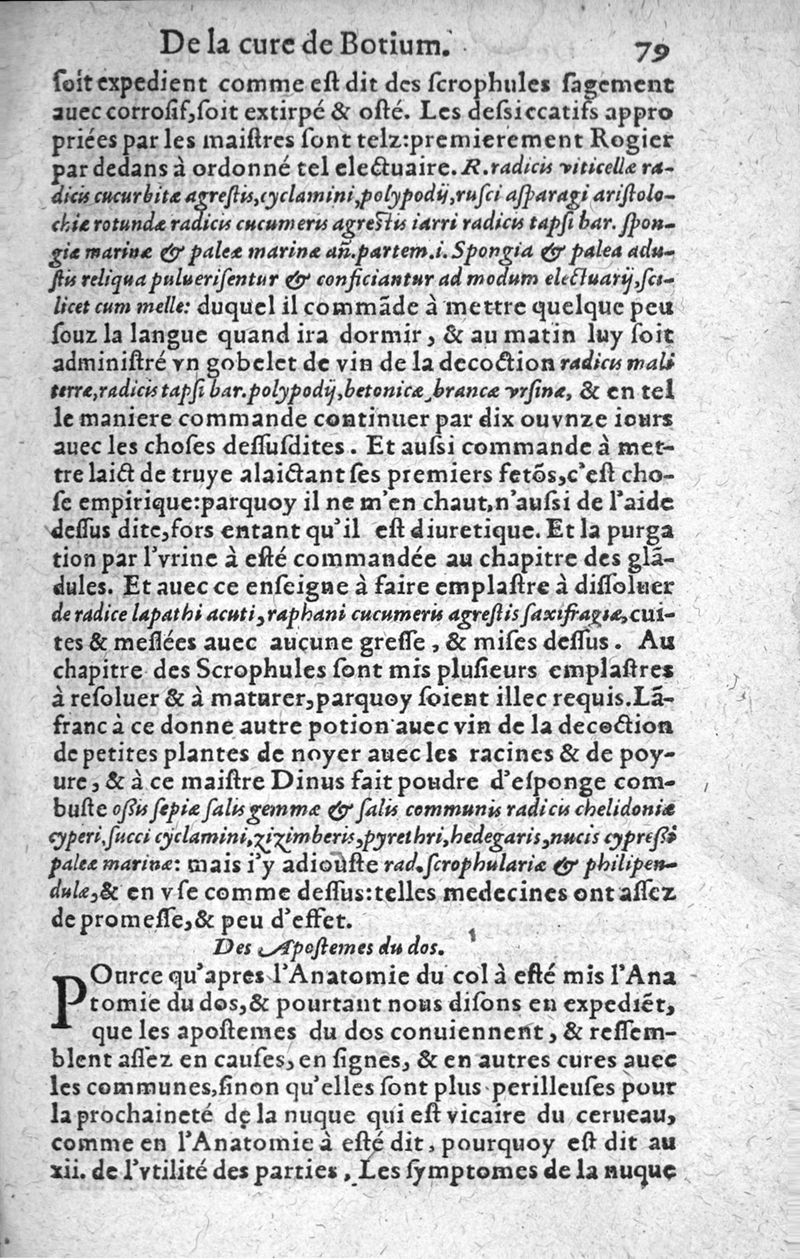 De la cure de Botium. 79
ſoit expedient comme eſt dit des ſcrophules ſagement
auec corroſif, ſoit extirpé & oſté. Les deſsiccatifs appro
priées par les maiſtres ſont telz: premierement Rogier
par dedans à ordonné tel electuaire. R. radicis viticellæ ra-
dicis cucurbitæ agreſtis, cyclamini, polypodij, ruſci aſparagi ariſtolo-
chiæ rotundæ radicis cucumeris agreſtis iarri radicis tapſi bar. ſpon-
giæ marinæ & paleæ marinæ añ. partem .i. Spongia & palea adu-
ſtis reliqua pulueriſentur & conficiantur ad modum electuarij, ſci-
licet cum melle: duquel il commãde à mettre quelque peu
ſouz la langue quand ira dormir, & au matin luy ſoit
adminiſtré vn gobelet de vin de la decoction radicis mali
terræ, radicis tapſi bar. polypodij, betonicæ, brancæ vrſinæ, & en tel
le maniere commande continuer par dix ou vnze iours
auec les choſes deſſuſdites. Et auſsi commande à met-
tre laict de truye alaictant ſes premiers fetõs, c'eſt cho-
ſe empirique: parquoy il ne m'en chaut, n'auſsi de l'aide
deſſus dite, fors entant qu'il eſt diuretique. Et la purga
tion par l'vrine à eſté commandée au chapitre des glã-
dules. Et auec ce enſeigne à faire emplaſtre à diſſoluer
de radice lapathi acuti, raphani cucumeris agreſtis ſaxifragiæ, cui-
tes & meſlées auec aucune greſſe, & miſes deſſus. Au
chapitre des Scrophules ſont mis pluſieurs emplaſtres
à reſoluer & à maturer, parquoy ſoient illec requis. Lã-
franc à ce donne autre potion auec vin de la decoction
de petites plantes de noyer auec les racines & de poy-
ure, & à ce maiſtre Dinus fait poudre d'eſponge com-
buſte oſsis ſepiæ ſalis gemmæ & ſalis communis radicis chelidoniæ
cyperi, ſucci cyclamini, zizimberis, pyrethri, hedegaris, nucis cypreſsi
paleæ marinæ: mais i'y adiouſte rad. ſcrophulariæ & philipen-
dulæ, & en vſe comme deſſus: telles medecines ont aſſez
de promeſſe, & peu d'effet.
Des Apoſtemes du dos.
POurce qu'apres l'Anatomie du col à eſté mis l'Ana
tomie du dos, & pourtant nous diſons en expediẽt,
que les apoſtemes du dos conuiennent, & reſſem-
blent aſſez en cauſes, en ſignes, & en autres cures auec
les communes, ſinon qu'elles ſont plus perilleuſes pour
la prochaineté de la nuque qui eſt vicaire du cerueau,
comme en l'Anatomie à eſté dit, pourquoy eſt dit au
xii. de l'vtilité des parties, Les ſymptomes de la nuque